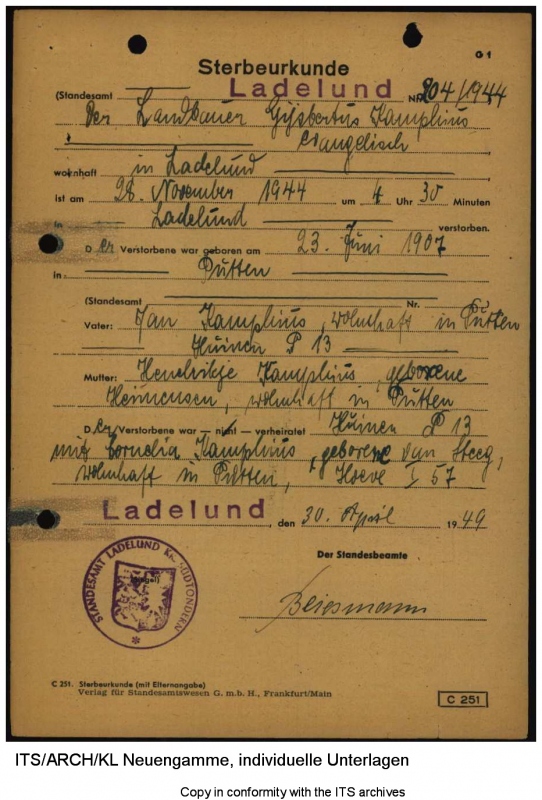 G 1
Sterbeurkunde
(Standesamt Ladelund Nr. 204/1944
Der Landbauer Gijsbertus Kamphius
evangelisch
wohnhaft in Ladelund
ist am 28. November 1944 um 4 Uhr 30 Minuten
in Ladelund verstorben.
D er Verstorbene war geboren am 23. Juni 1907
in Putten
(Standesamt Nr.
Vater: Jan Kamphius, wohnhaft in Putten
Huinen P 13
Mutter: Kamphius, geborene
wohnhaft in Putten
D er Verstorbene war — nicht — verheiratet Huinen P 13
mit Cornelia Kamphius, geborene van Steeg,
wohnhaft in Putten, Hoeve I 57
Ladelund, den 30. April 1949
Der Standesbeamte
(Siegel)
STANDESAMT LADELUND KR. SÜDTONDERN
C 251. Sterbeurkunde (mit Elternangabe)
Verlag für Standesamtswesen G. m. b. H., Frankfurt/Main
C 251
ITS/ARCH/KL Neuengamme, individuelle Unterlagen
Copy in conformity with the ITS archives